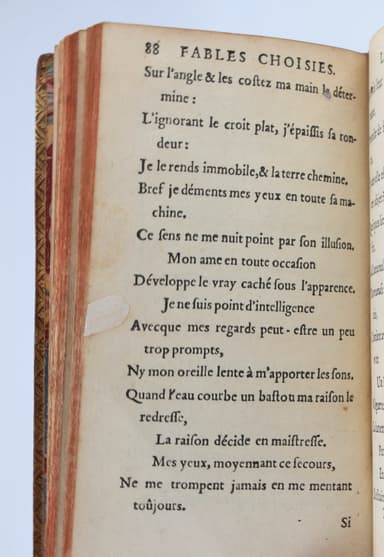 88 FABLES CHOISIES.
Sur l'angle & les costez ma main le déter-
mine :
L'ignorant le croit plat, j'épaissis sa ron-
deur :
Je le rends immobile, & la terre chemine.
Bref je déments mes yeux en toute sa ma-
chine.
Ce sens ne me nuit point par son illusion.
Mon ame en toute occasion
Développe le vray caché sous l'apparence.
Je ne suis point d'intelligence
Avecque mes regards peut-estre un peu
trop prompts,
Ny mon oreille lente à m'apporter les sons.
Quand l'eau courbe un baston ma raison le
redresse,
La raison décide en maistresse.
Mes yeux, moyennant ce secours,
Ne me trompent jamais en me mentant
toûjours.
Si